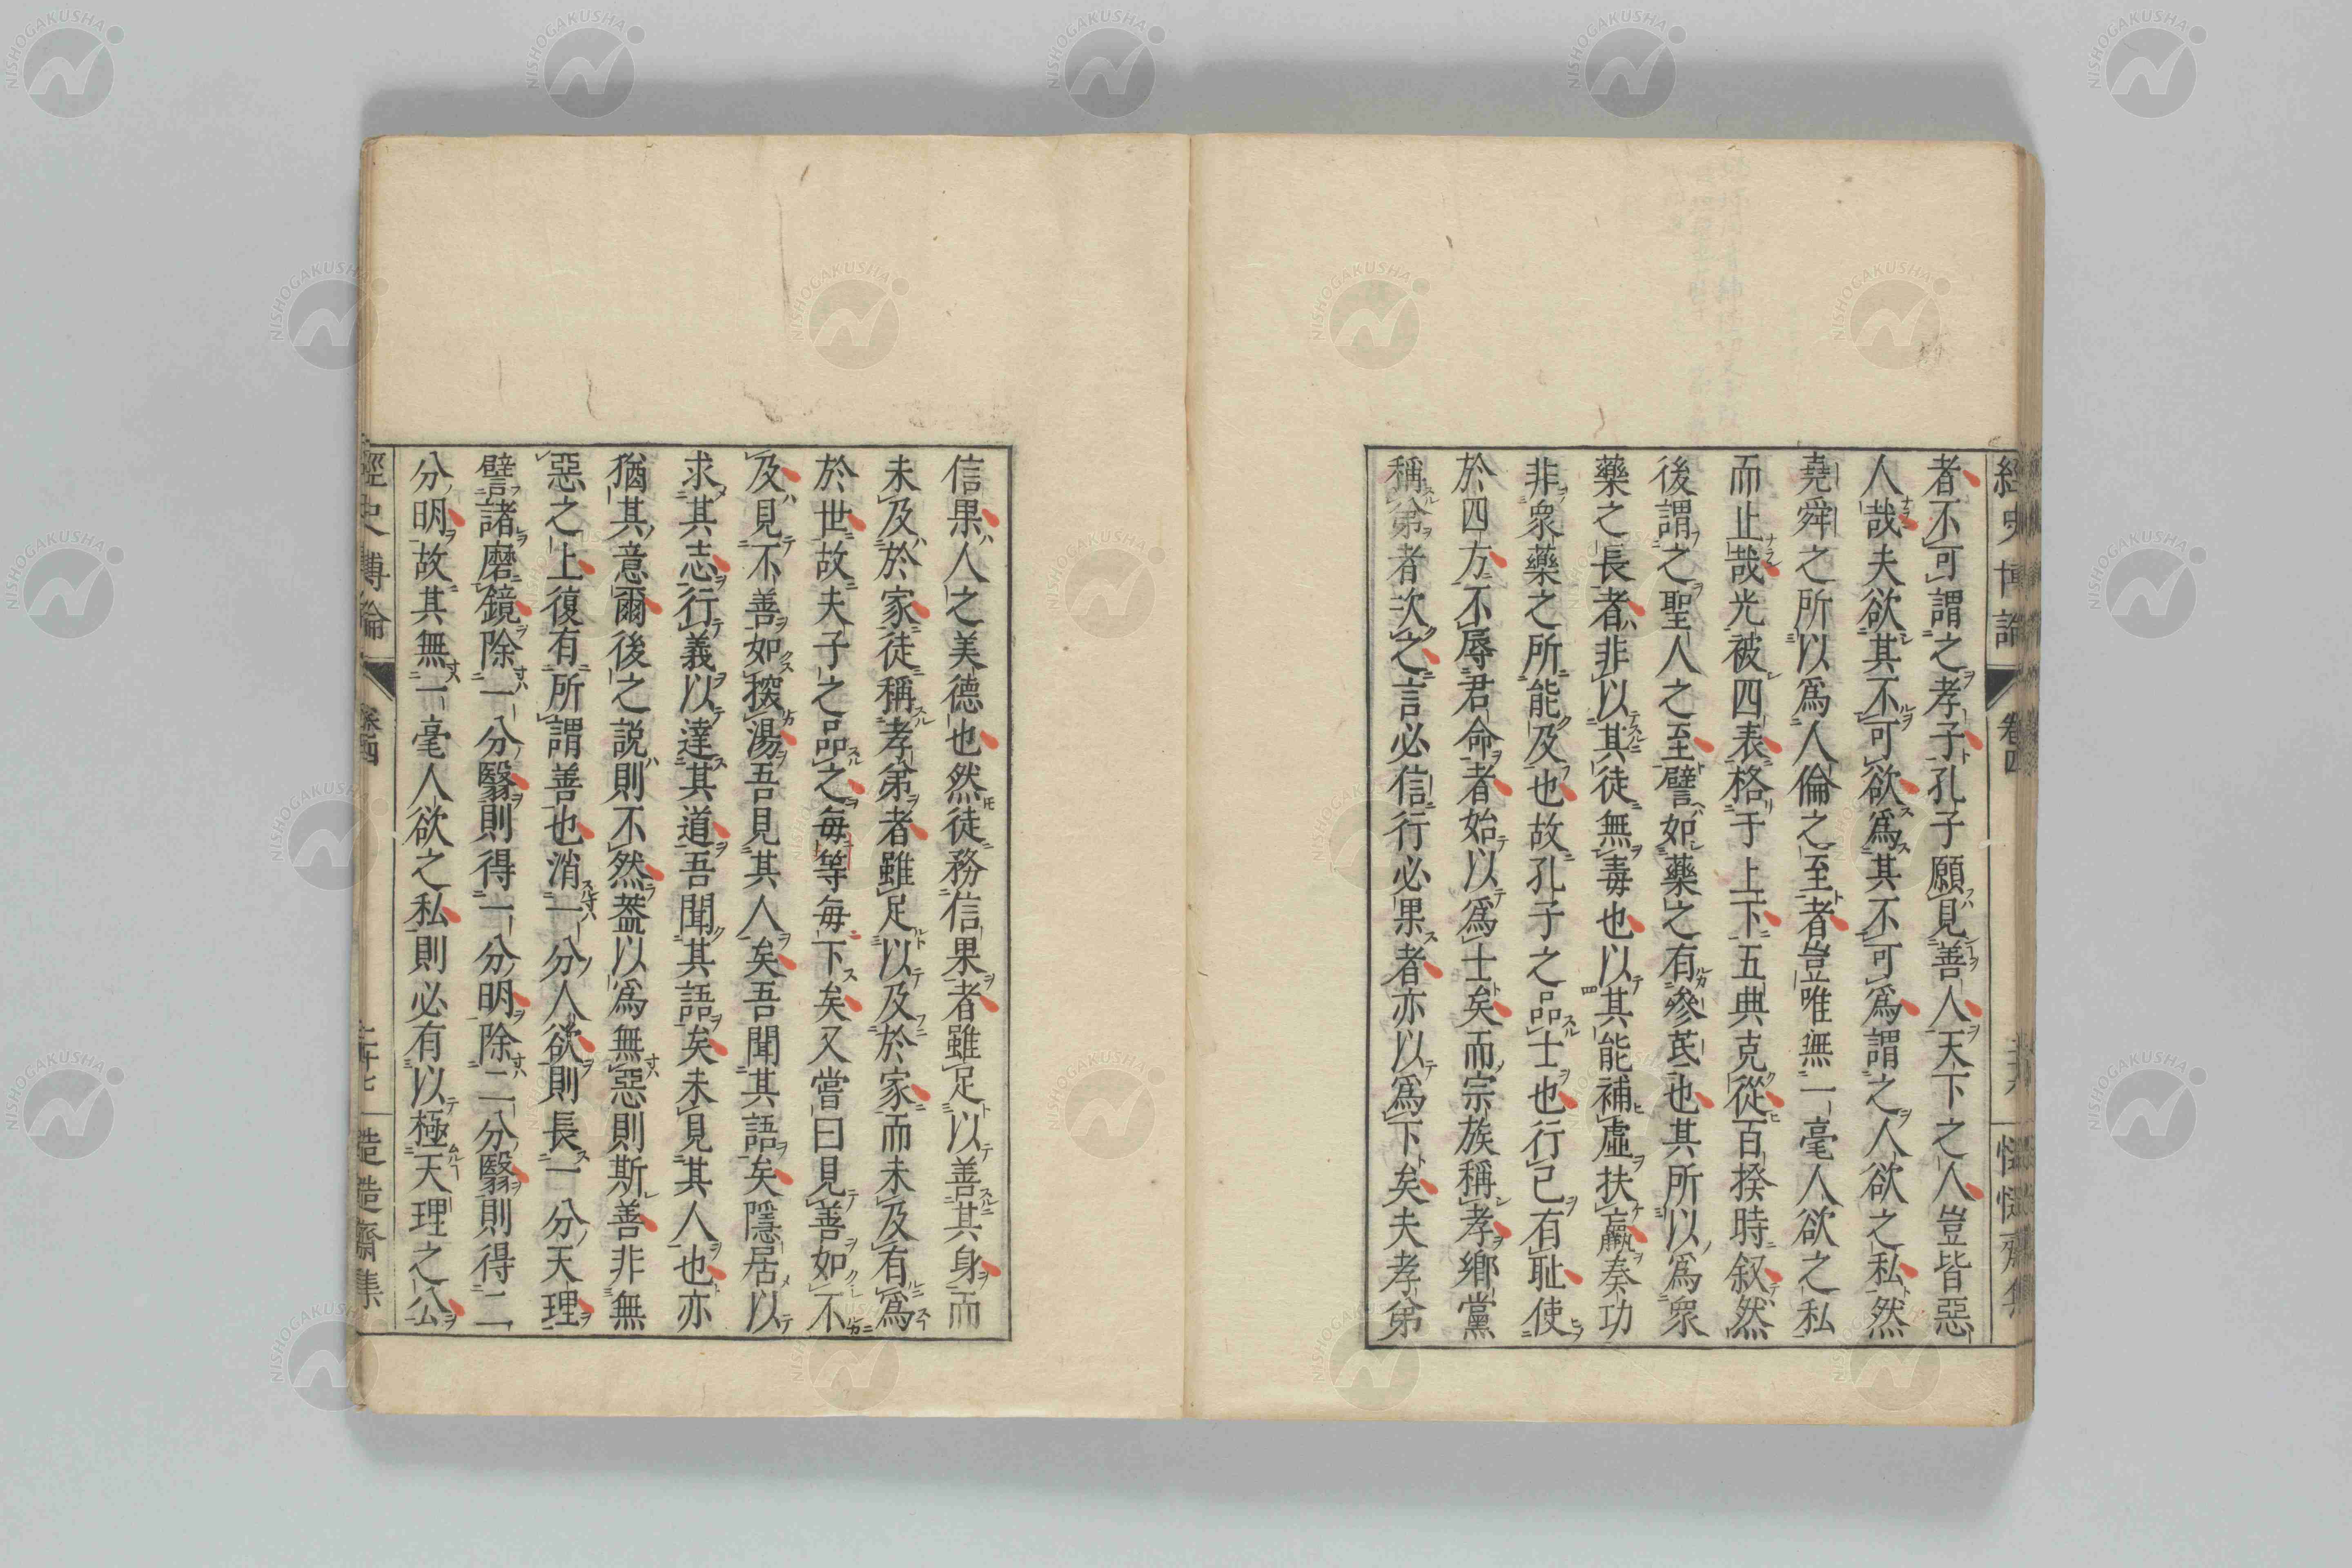 經史博論 卷四
者不可謂之孝子孔子願見善人天下之人豈皆惡
人哉夫欲其不可欲爲其不可爲謂之人欲之私然
堯舜之所以爲人倫之至者豈唯無一毫人欲之私
而止哉光被四表格于上下五典克從百揆時叙然
後謂之聖人之至譬如藥之有參芪也其所以爲衆
藥之長者非以其徒無毒也以其能補虛扶羸奏功
非衆藥之所能及也故孔子之品士也行己有耻使
於四方不辱君命者始以爲士矣而宗族稱孝鄉黨
稱弟者次之言必信行必果者亦以爲下矣夫孝弟
信果人之美德也然徒務信果者雖足以善其身而
未及於家徒稱孝弟者雖足以及於家而未及有爲
於世故夫子之品之每等每下矣又嘗曰見善如不
及見不善如探湯吾見其人矣吾聞其語矣隱居以
求其志行義以達其道吾聞其語矣未見其人也亦
猶其意爾後之説則不然葢以爲無惡則斯善非無
惡之上復有所謂善也消一分人欲則長一分天理
譬諸磨鏡除一分翳則得一分明除二分翳則得二
分明故其無一毫人欲之私則必有以極天理之公
經史博論 卷四
NISHOGAKUSHA